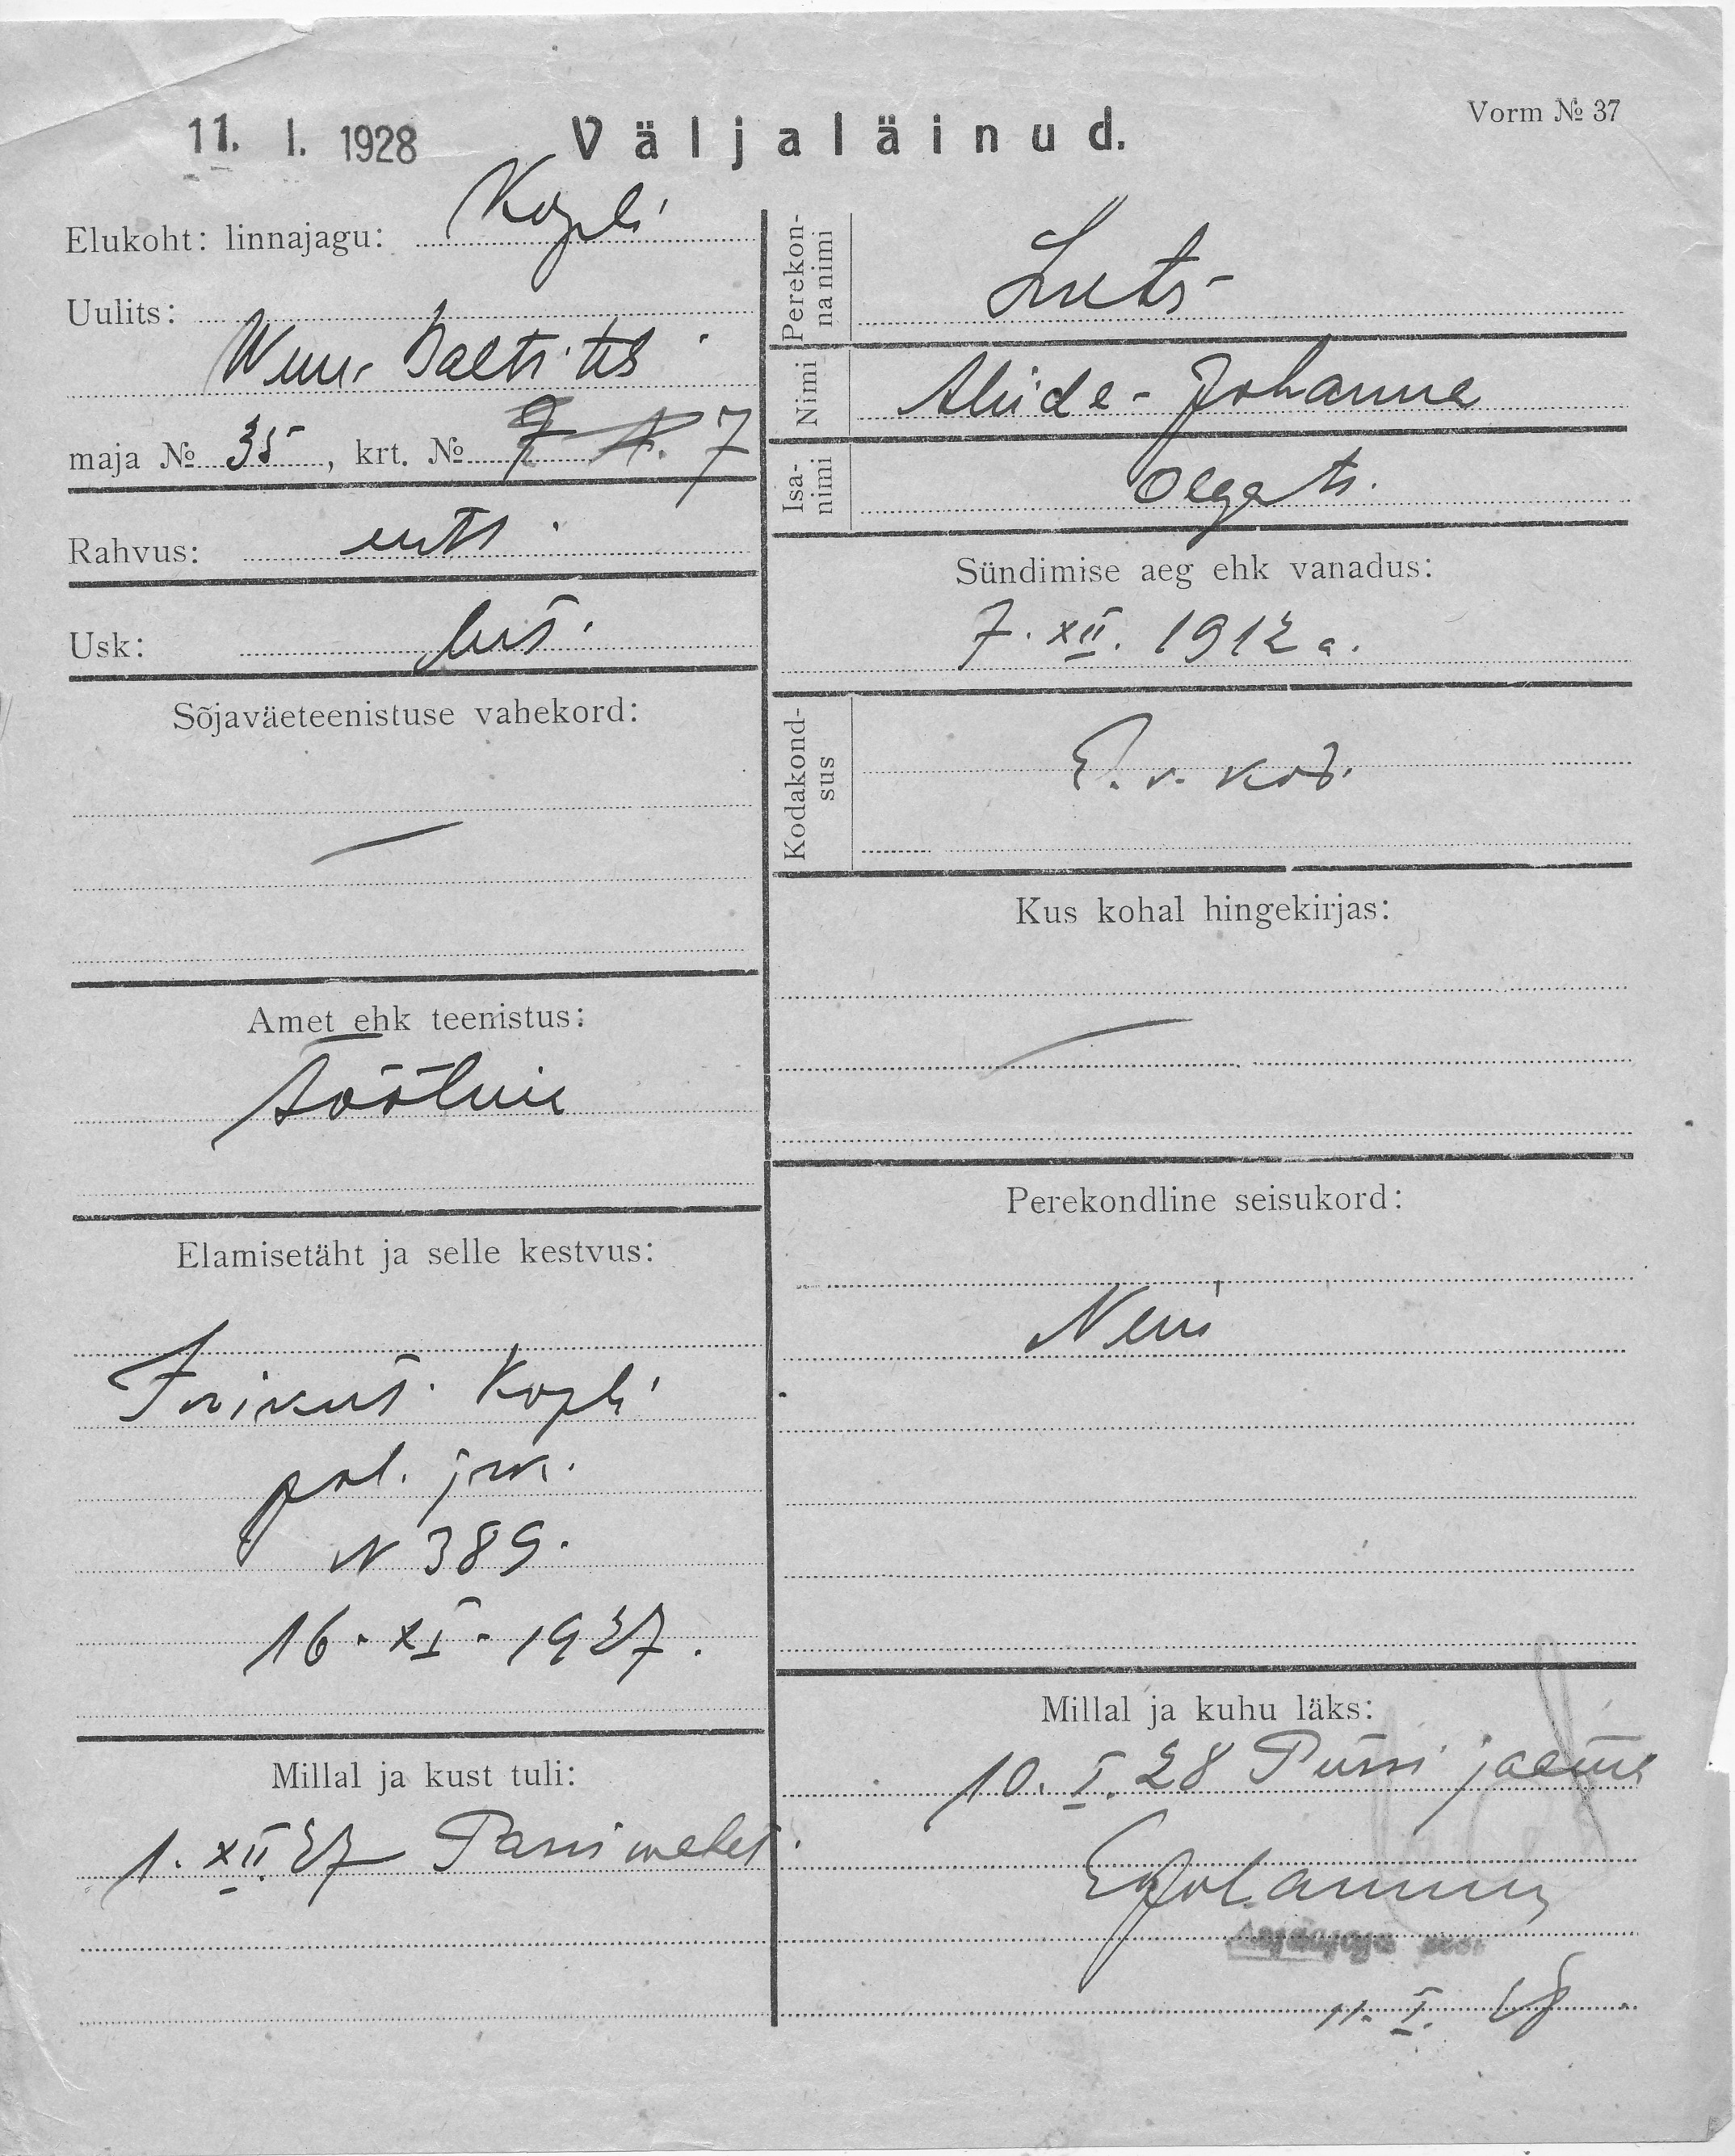 Vorm № 37
11. I. 1928 Väljaläinud.
Elukoht: linnajagu: Kopli
Uulits:
Wene-Balti tch
maja № 35, krt. № 7
Rahvus: eesti
Usk: lut.
Sõjaväeteenistuse vahekord:
—
Amet ehk teenistus:
tööline
Elamisetäht ja selle kestvus:
Isikut. Kopli
pol. jsk.
N 389.
16-XI-1927.
Millal ja kust tuli:
1. XII 27
Perekonna nimi
Luts
Nimi
Aliide-Johanna
Isanimi
Olga t.
Sündimise aeg ehk vanadus:
7. XII. 1912 a.
Kodakondsus
E. v. kod.
Kus kohal hingekirjas:
—
Perekondline seisukord:
Neiu
Millal ja kuhu läks:
10. I. 28 Püssi jaama
11. I. 28